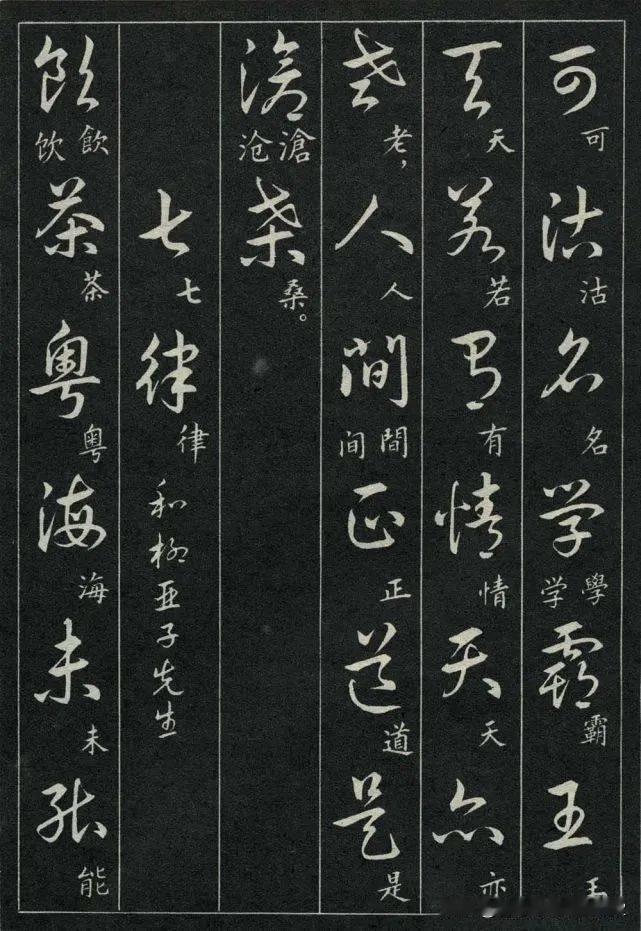 可沽名学霸王
可沽名學学霸王
天若有情天亦
天若有情天亦
老人間正道是
老，人間间正道是
滄桑
滄沧桑。
七律 和柳亚子先生
七律
飲茶粤海未能
飲饮茶粤海未能